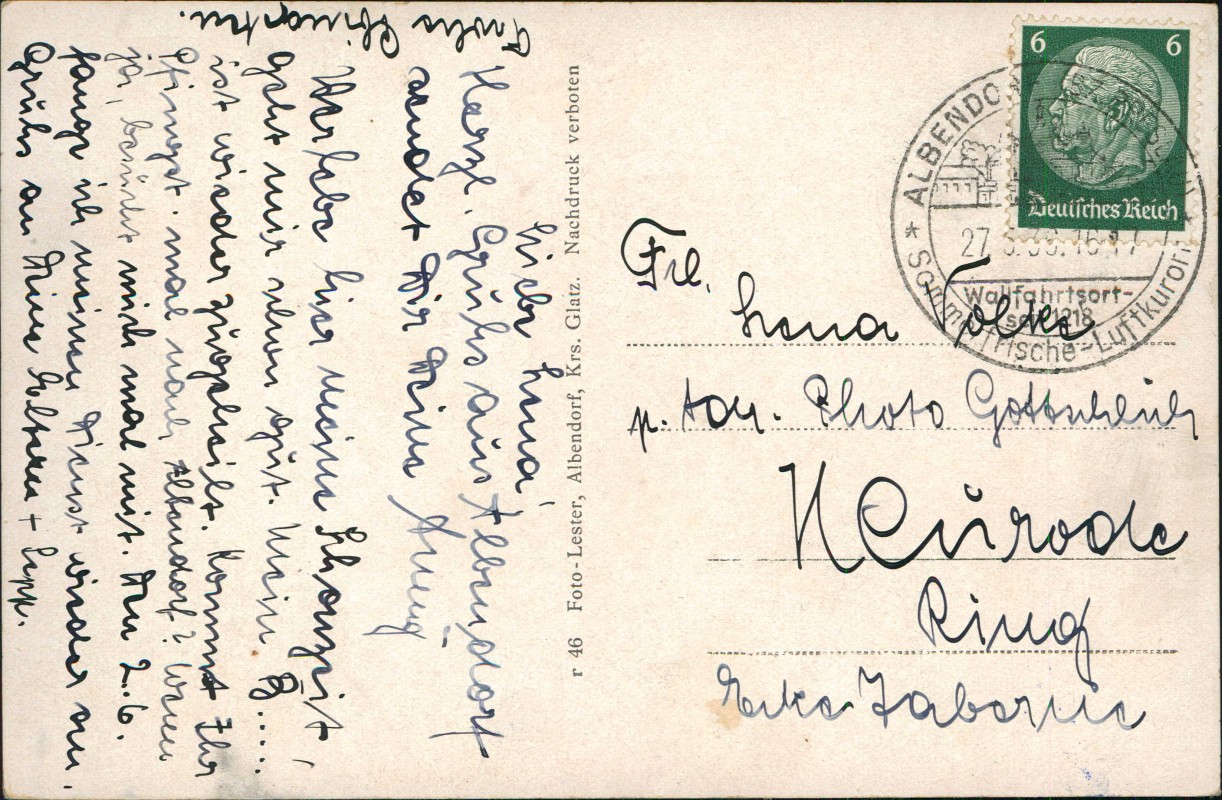 Frohe Pfingsten.
Liebe Lena!
Herzl. Grüße aus Albendorf
sendet Dir Deine
Verlebe hier meine
geht mir schon gut. Mein B.....
ist wieder zugeheilt. Kommt Ihr
Pfingst. mal nach Albendorf? Wenn
ja, besucht mich mal mit. Am 2.6.
fange ich meinen Dienst wieder an.
Grüße an Deine Eltern + Sepp.
r 46 Foto-Lester, Albendorf, Krs. Glatz. Nachdruck verboten
6 6
Deutsches Reich
ALBENDORF
27
16-17
Wallfahrtsort-
seit 1218
Sommerfrische-Luftkurort
Frl.
Lena Volke
p. Adr. Photo Gottschlich
Neurode
Ring
Ecke